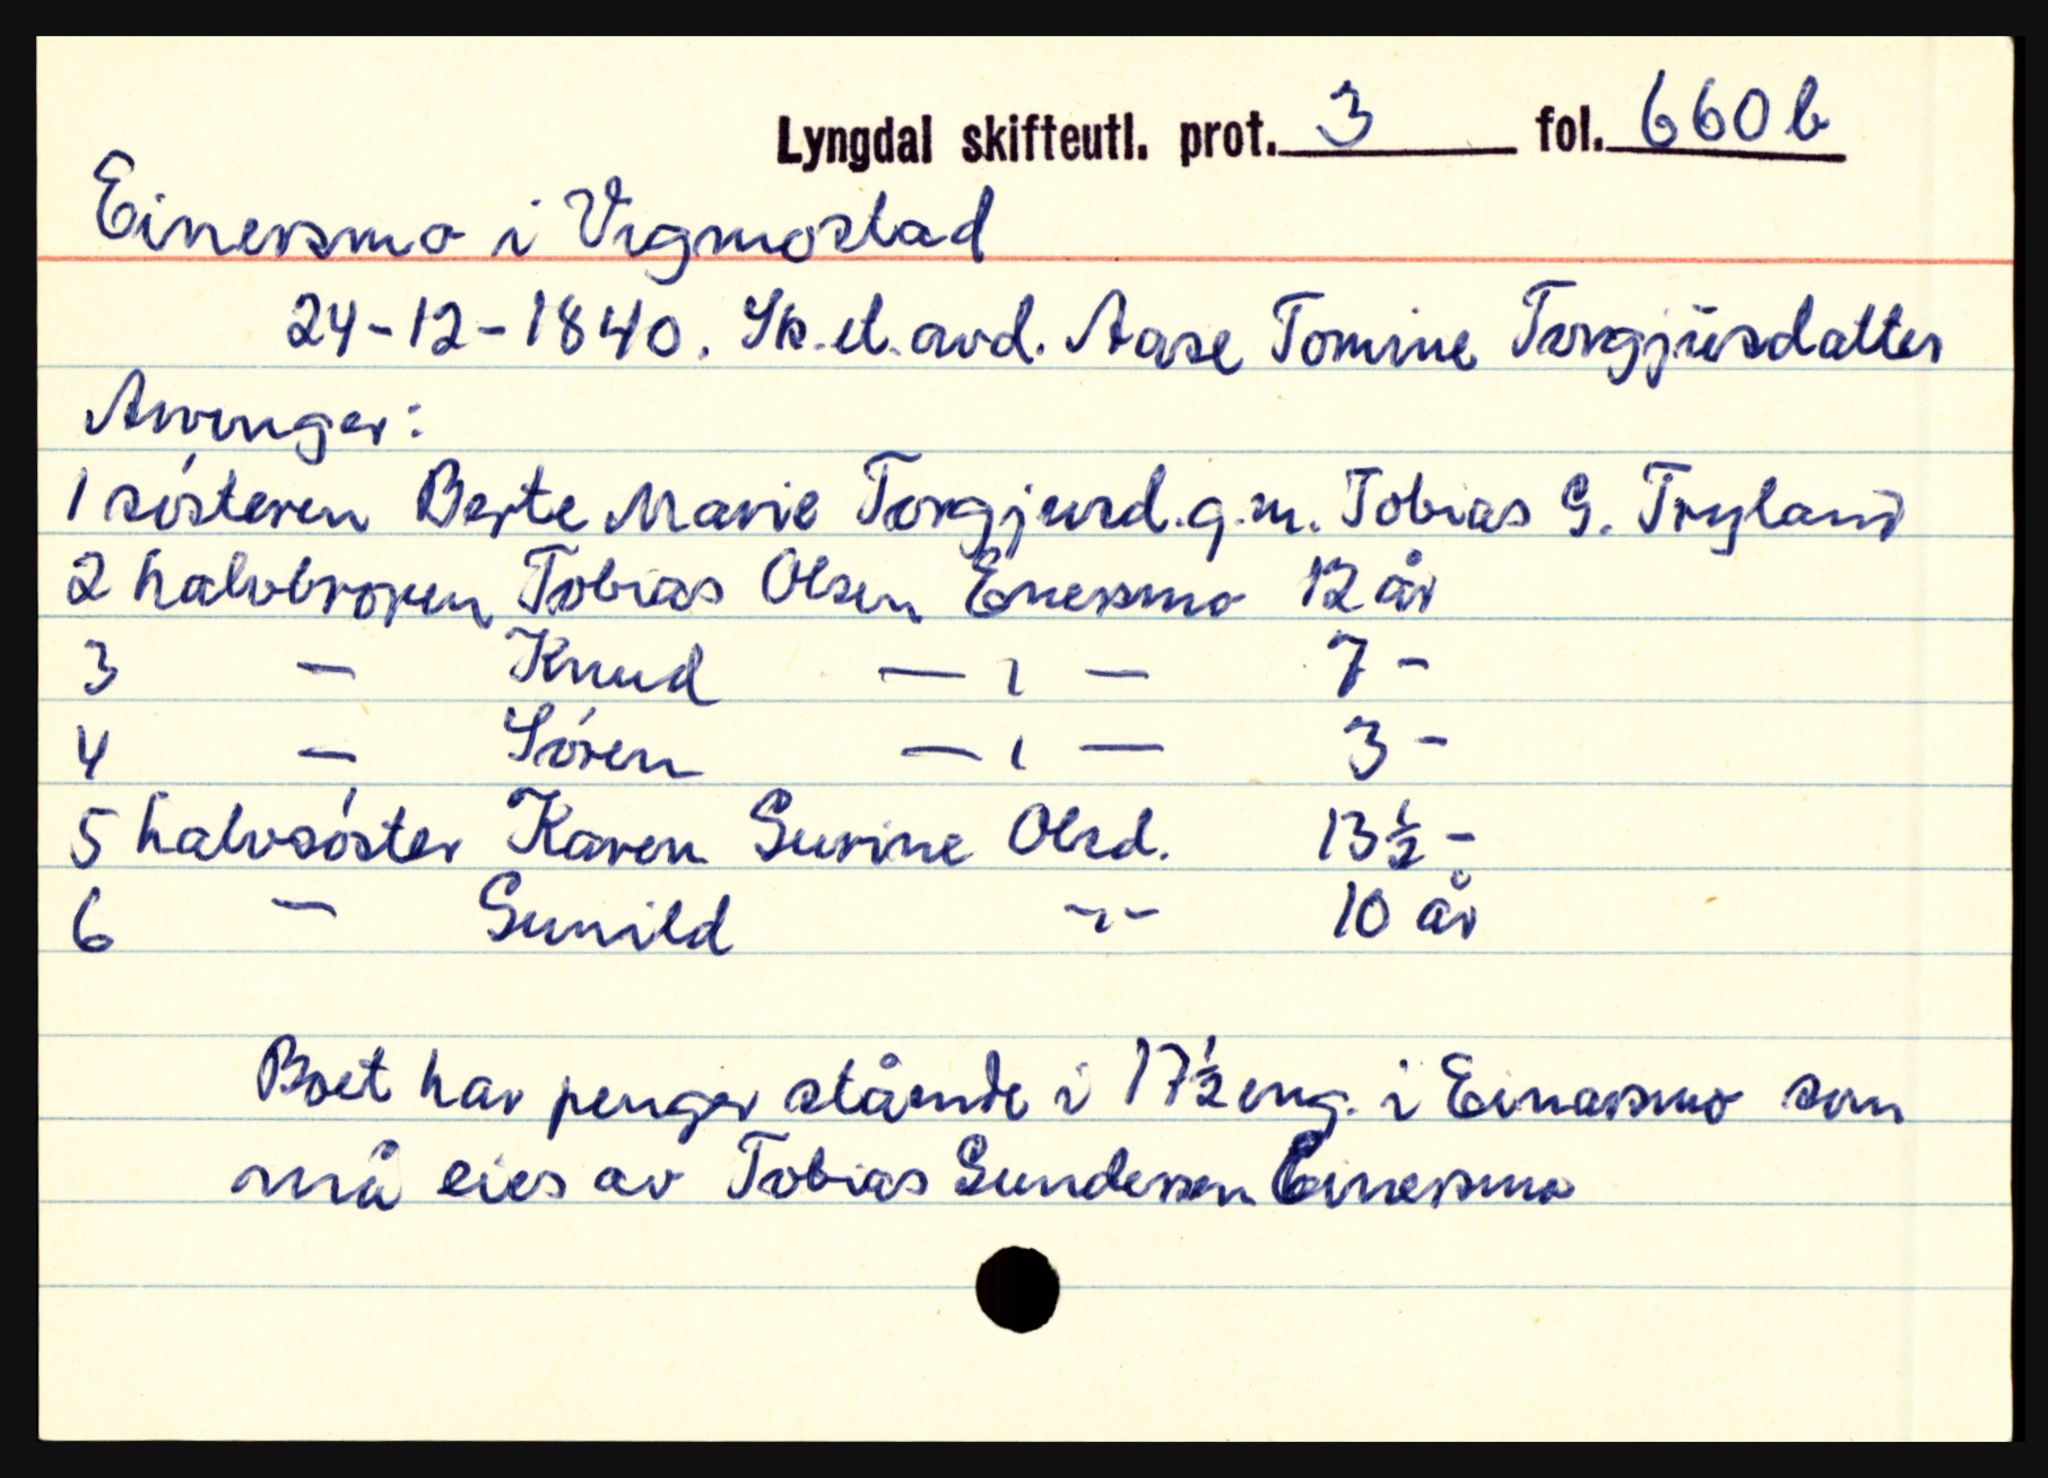 Lyngdal skifteutl. prot. 3 fol. 660b
Einersmo i Vigmostad
24-12-1840. Sk. et. avd. Aase Tomine Torgjüsdatter
Arvinger:
1 sósteren Berte Marie Torgjusd. g.m. Tobias G. Tryland
2 halvbroren Tobias Olsen Enersmo 12 år
3 — Knud — ı — 7 -
4 — Sóren — ı — 3 -
5 halvsóster Karen Gurine Olsd. 13½ -
6 — Gunild -ı- 10 år
Boet har penger stående i 17½ eng. i Einarsmo som
må eies av Tobias Gundersen Einersmo